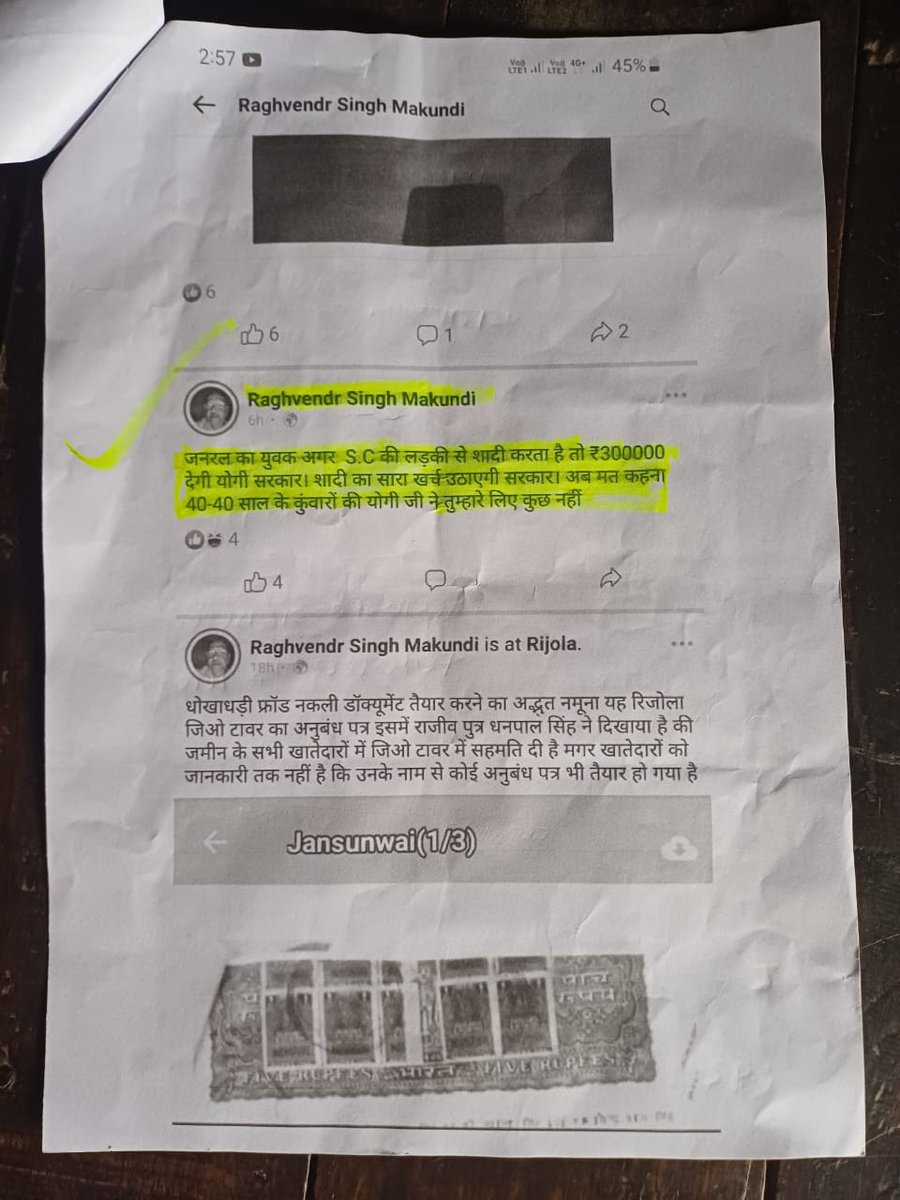 2:57
Vo)) LTE1 Vo)) LTE2 4G+ 45%
Raghvendr Singh Makundi
6
6 1 2
Raghvendr Singh Makundi
6h
जनरल का युवक अगर S.C की लड़की से शादी करता है तो ₹300000
देगी योगी सरकार। शादी का सारा खर्च उठाएगी सरकार। अब मत कहना
40-40 साल के कुंवारों की योगी जी ने तुम्हारे लिए कुछ नहीं
4
4
Raghvendr Singh Makundi is at Rijola.
18h
धोखाधड़ी फ्रॉड नकली डॉक्यूमेंट तैयार करने का अद्भुत नमूना यह रिजोला
जिओ टावर का अनुबंध पत्र इसमें राजीव पुत्र धनपाल सिंह ने दिखाया है की
जमीन के सभी खातेदारों में जिओ टावर में सहमति दी है मगर खातेदारों को
जानकारी तक नहीं है कि उनके नाम से कोई अनुबंध पत्र भी तैयार हो गया है
Jansunwai(1/3)
पाँच
रुपये
FIVE RUPEES भारत FIVE RUPEES